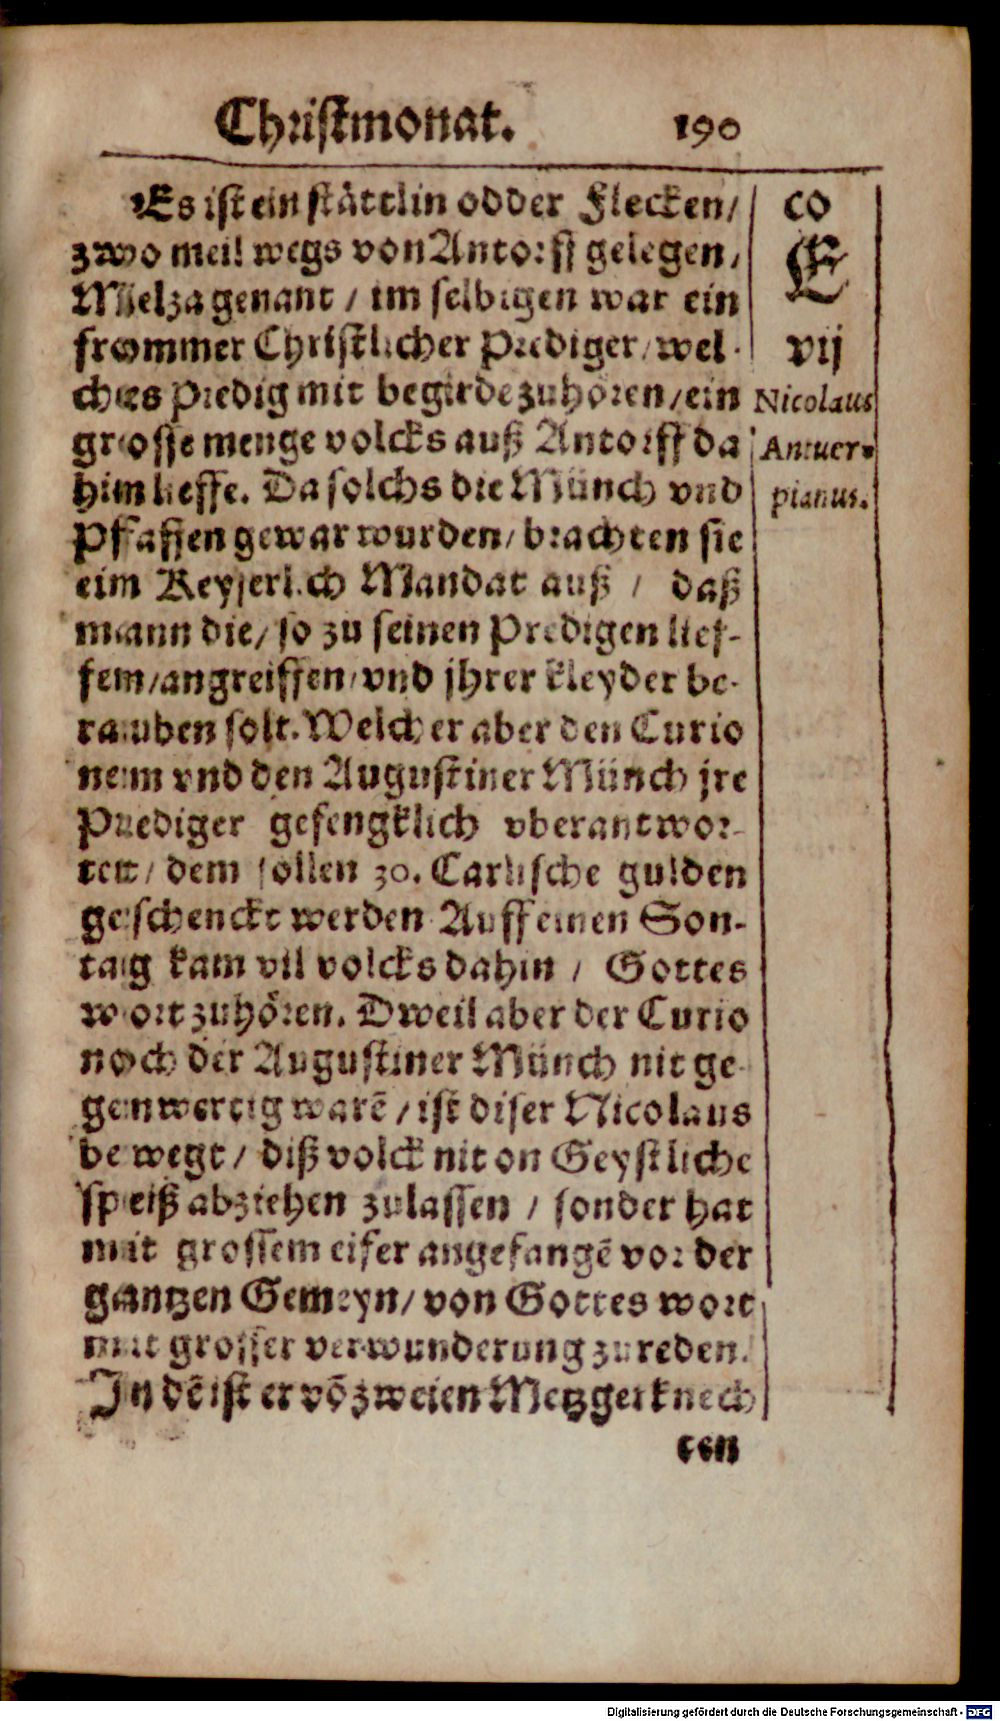 Christmonat. 190
Es ist ein stättlin odder Flecken/
zwo meil wegs von Antorff gelegen,
Mielza genant / im selbigen war ein
frommer Christlicher Prediger/wel-
ches Predig mit begirde zuhören/ein
grosse menge volcks auß Antorff da
hin lieffe. Da solchs die Münch vnd
Pfaffen gewar wurden/ brachten sie
ein Keyserlich Mandat auß / daß
mann die/ so zu seinen Predigen lief-
fen/angreiffen/vnd jhrer kleyder be-
rauben solt. Welcher aber den Curio
nem vnd den Augustiner Münch jre
Prediger gefengklich vberantwor-
tett/ dem sollen 30. Carlische gulden
geschenckt werden. Auff einen Son-
tag kam vil volcks dahin / Gottes
wort zuhören. Dweil aber der Curio
noch der Augustiner Münch nit ge-
genwertig warē /ist diser Nicolaus
bewegt/ diß volck nit on Geystliche
speiß abziehen zulassen / sonder hat
mit grossem eifer angefangē vor der
gantzen Gemeyn/ von Gottes wort
mit grosser verwunderung zureden.
In dē ist er vō zweien Metzgerknech
ten
CO
E
vij
Nicolaus
Antuer-
pianus.
Digitalisierung gefördert durch die Deutsche Forschungsgemeinschaft - DFG